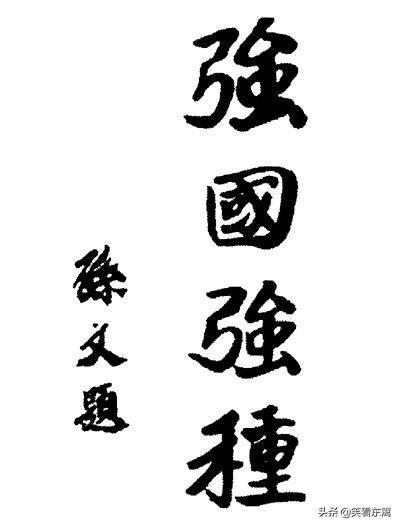 強國強種
孫文題
头条 @笑看东篱